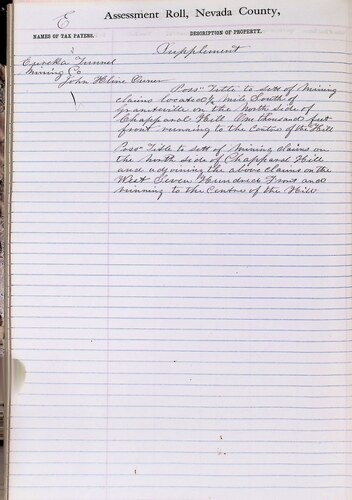 E
Assessment Roll, Nevada County,
NAMES OF TAX PAYERS.
DESCRIPTION OF PROPERTY.
Supplement
Eureka Tunnel
Mining Co
John Kline
Poss Title to sett of Mining
claims located ½ mile South of
Graniteville on the North side of
Chapparal Hill One thousand feet
front running to the Centre of the Hill
Poss Title to sett of Mining claims on
the North side of Chapparal Hill
and adjoining the above claims on the
West Seven Hundred Front and
running to the Centre of the Hill